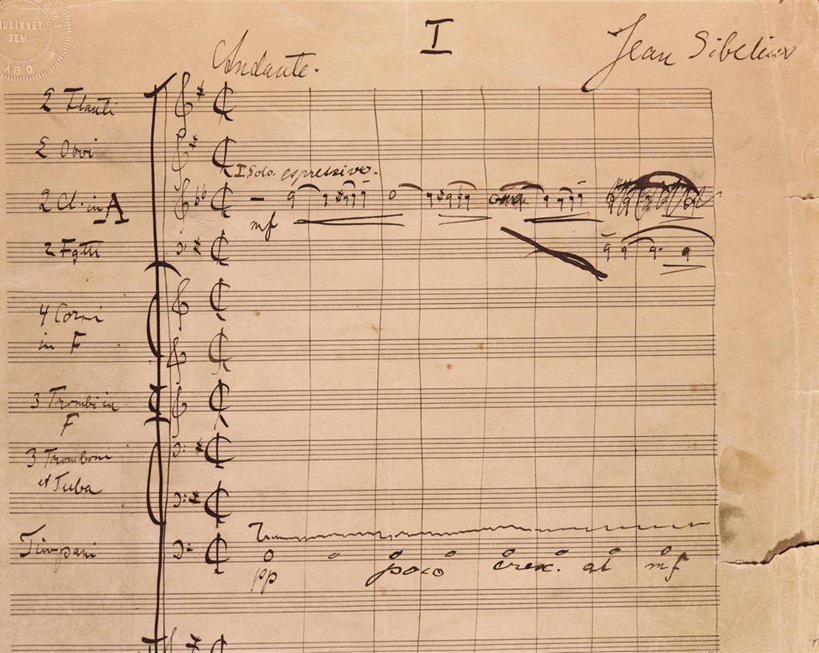 MUSIKVET.
SEM.
ÅBO
I
Jean Sibelius
Andante.
2 Flauti
2 Oboi
I Solo espressivo.
2 Cl. in A
mf
2 Fgtti
4 Corni
in F
3 Trombe in
F
3 Tromboni
et Tuba
Timpani
pp poco cresc. al mf